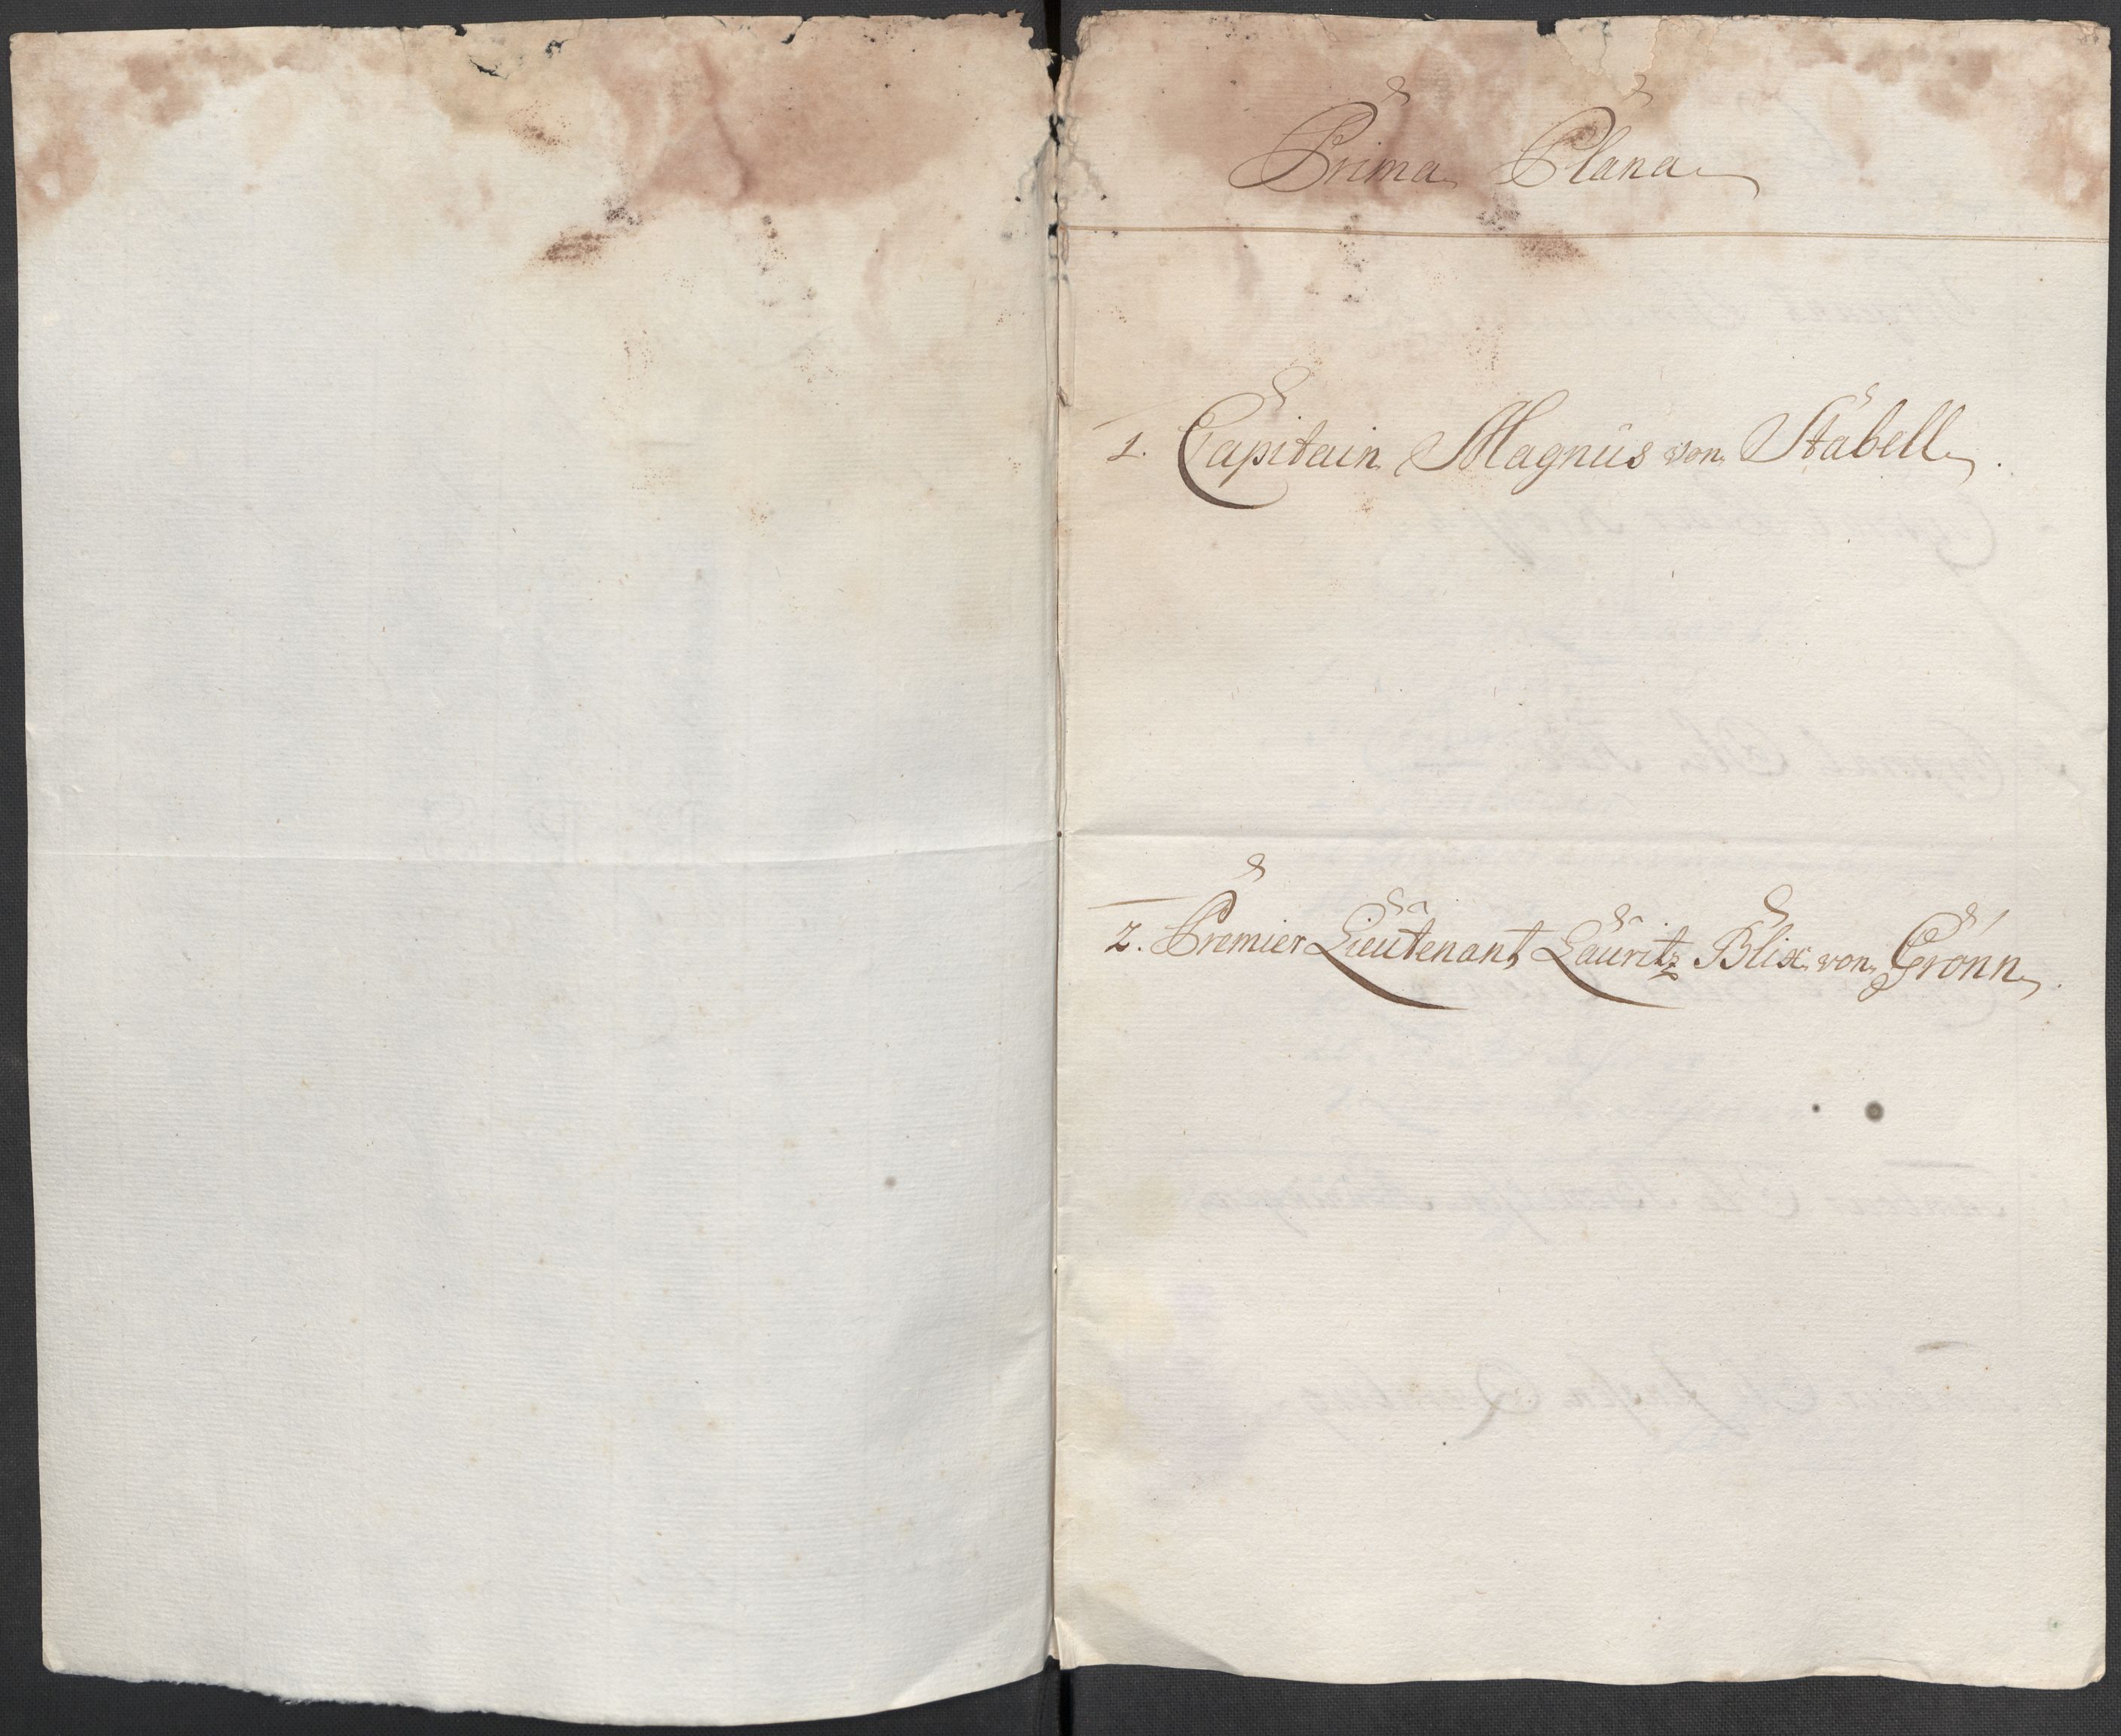 Prima Plana
1. Capitain Magnus von Stabell.
2. Premier Lieutenant Lauritz Blix von Grønn.